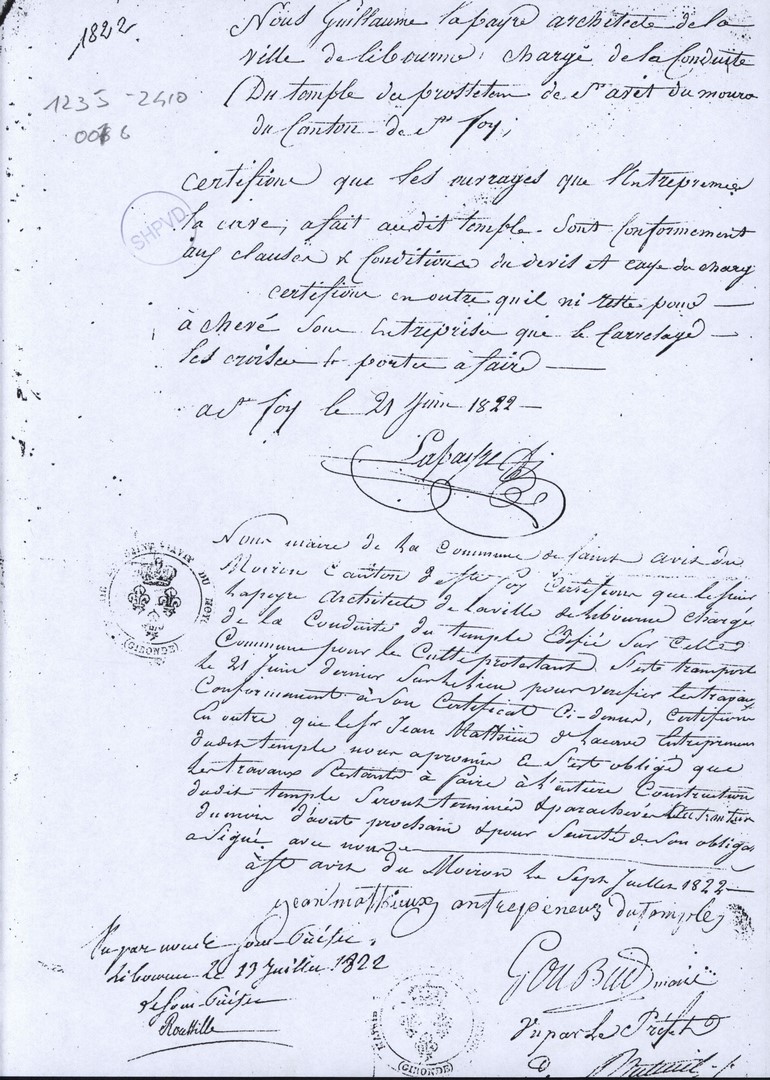 1822.
1235-2410
0066
SHPVD
Nous Guillaume Lapayre architecte de la
ville de libourne, chargé de la Conduite
Du temple du prostetan de St avit du moiron
du Canton de Ste foy;
certifions que les ouvrages que l'Entrepreneur
la cave, a fait audit temple sont Conformement
aux clauses & Conditions du devis et caye du charg
certifions en outre quil ni reste pour
à chevé son Entreprise que le Carrelage
les croisée & portes à faire
a Ste foy le 21 Juin 1822
Lapayre
Nous maire de la Commune de saint avis du
Moiron Canton de Ste foy Certifions que le sieur
Lapeyre architecte de la ville de Libourne chargé
de la Conduite du temple Edifié Sur Cette
Commune pour le Culte protestant. S'est transporté
le 21 Juin dernier Sur le lieu pour verifier les travaux
Conformement à Son Certificat Ci-dessus, Certifions
En outre que le Sr Jean Mathieu Lacave Entrepreneur
dudit temple nous a promis & S'est obligé que
les travaux Restants à faire à l'entiere Construction
dudit temple Seront terminés & parachevés
du mois d'août prochain & pour Seureté de Son obligaon
a Signé avec nous
à St avis du Moiron le Sept Juillet 1822
jean mathieux antrepeneur du temple
GOUBUD maire
Vu par nous Sous-Préfet
Libourne le 13 Juillet 1822
le Sous-Préfet
Vu par le Préfet
MAIRIE
(GIRONDE)
(GIRONDE)